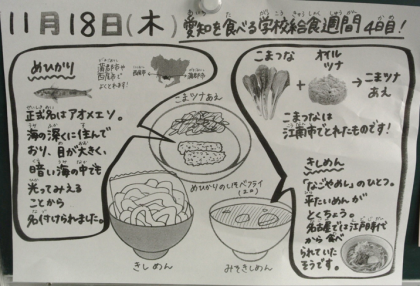 11月18日(木) 愛知を食べる学校給食週間 4日目!
めひかり
蒲郡市や
西尾市で
よくとれます!
西尾市
蒲郡市
正式名はアオメエソ。
海の深くに住んで
おり、目が大きく、
暗い海の中でも
光ってみえる
ことから
名付けられました。
こまツナあえ
めひかりのしそベフライ
(2コ)
きしめん
みそきしめん
こまつな
オイル
ツナ
+
→ こまツナ
あえ
こまつなは
江南市でとれたものです!
きしめん
「なごやめし」のひとつ。
平たいめんが
とくちょう。
名古屋では江戸時代
から食べ
られていた
そうです。